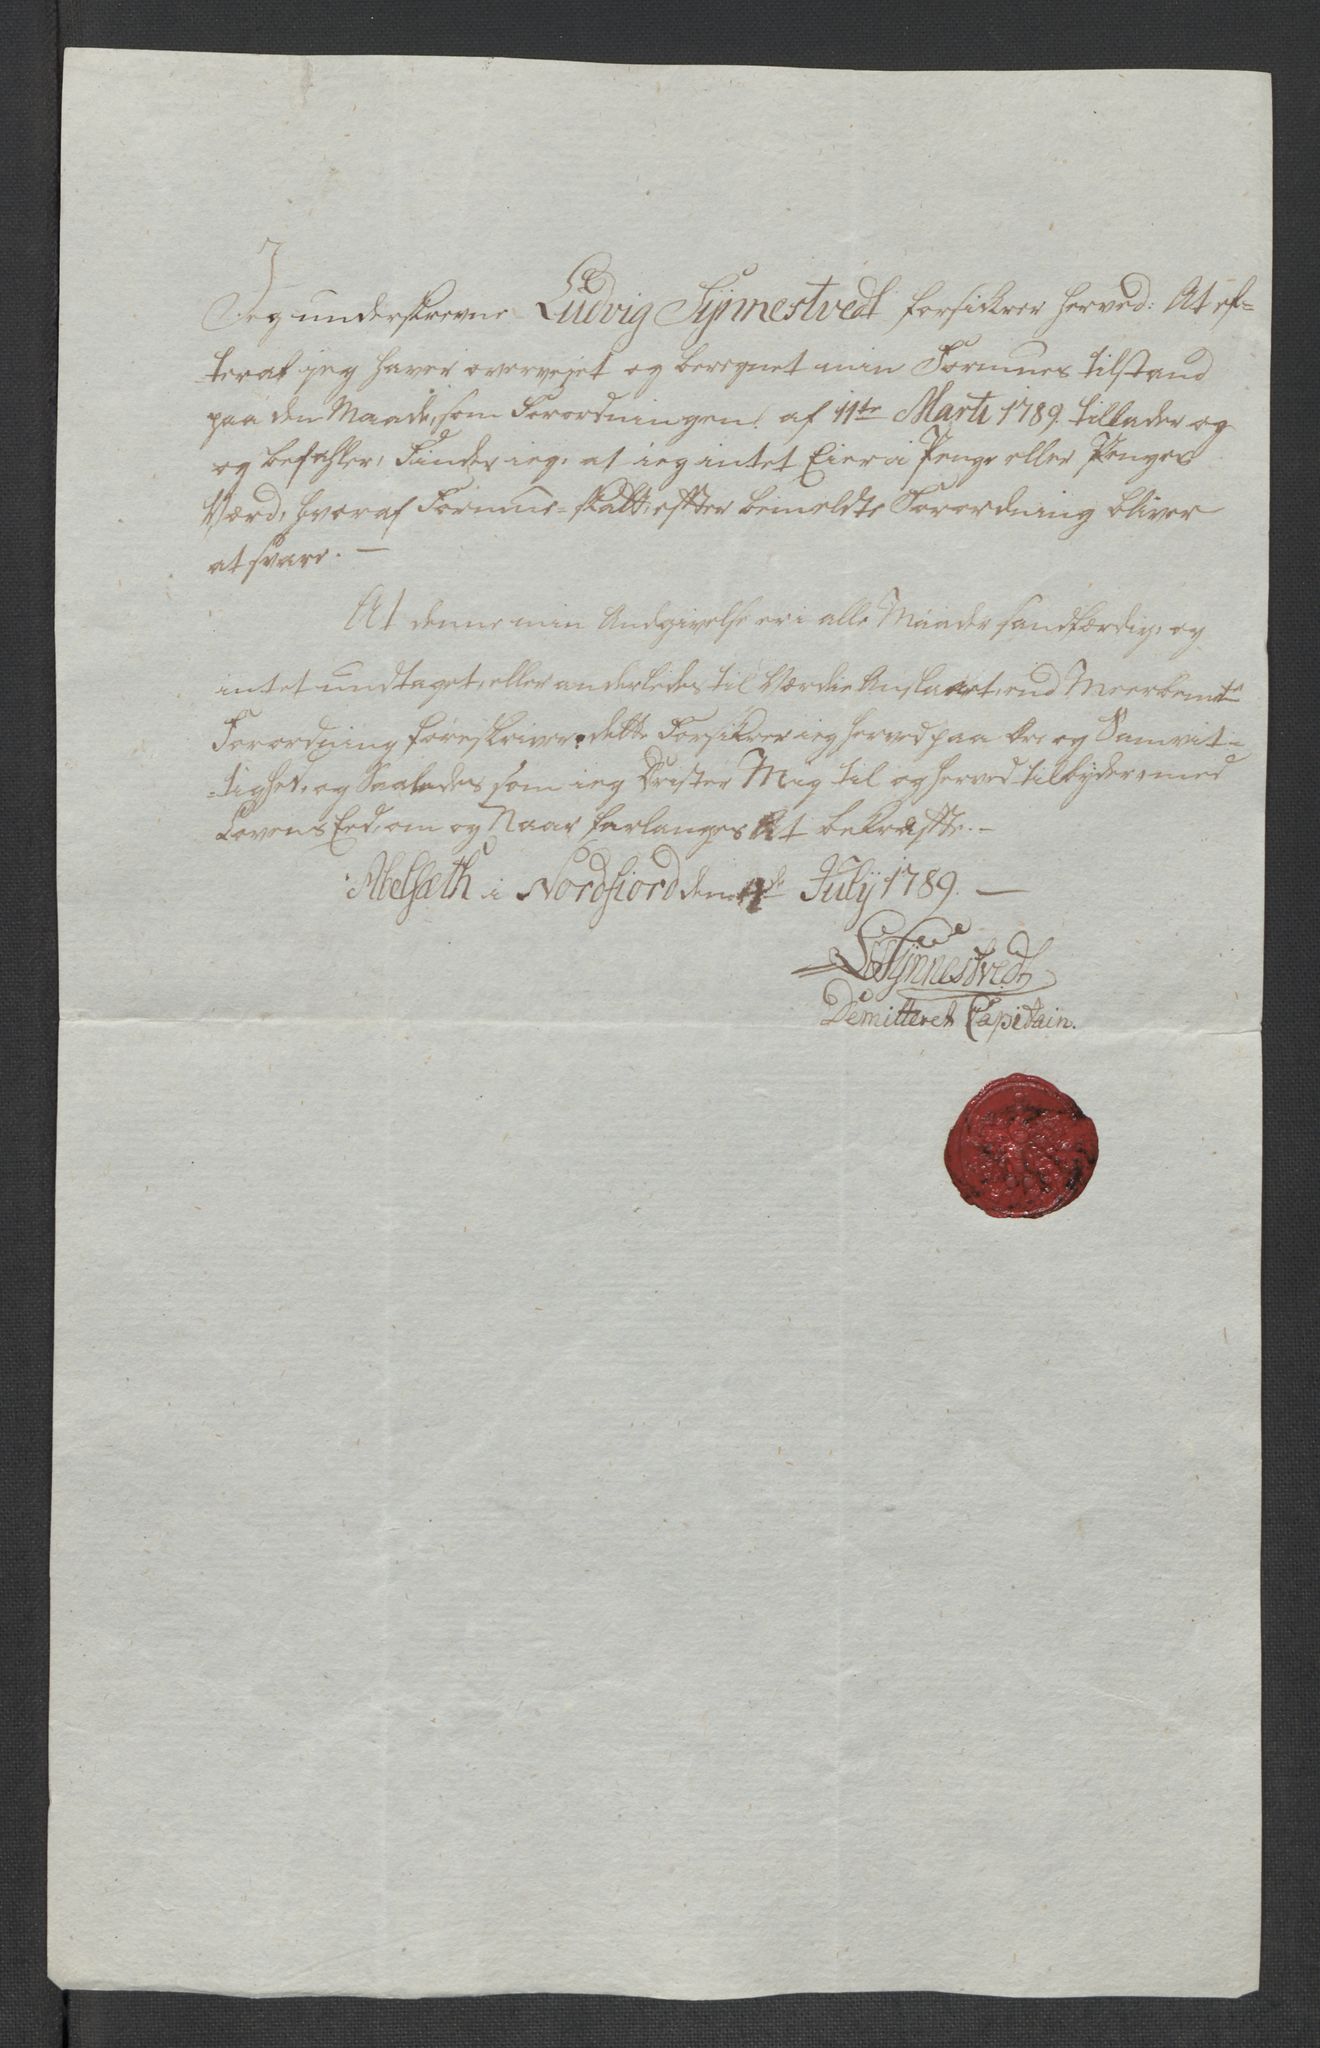 Jeg underskrevne Ludvig Synnestvedt forsikrer herved: At ef-
teraf jeg haver overvejet og bereqnet min Formues tilstand
paa den Maade, som Forordningen af 11te Marti 1789 tillader og
og befahler, Finder ieg, at ieg intet Eier i Penge eller Penges
Værd, hvoraf Formue-skatt, efter bemeldte Forordning bliver
at svare. —
At denne min Andgivelse er i alle Maader sandfærdig, og
intet undtaget, eller anderledes til Værdie Anslaaet, end Meerbemte
Forordning foreskriver, dette Forsikrer ieg herved paa Ære og Samvit-
-tighed, og Saaledes som ieg Drister Mig til og herved tilbyder, med
Lovens Eed, om og Naar forlanges At bekræfte. —
Abelsæth i Nordfiord den de July 1789. —
LSynnestvedt
Demitteret Capitain.